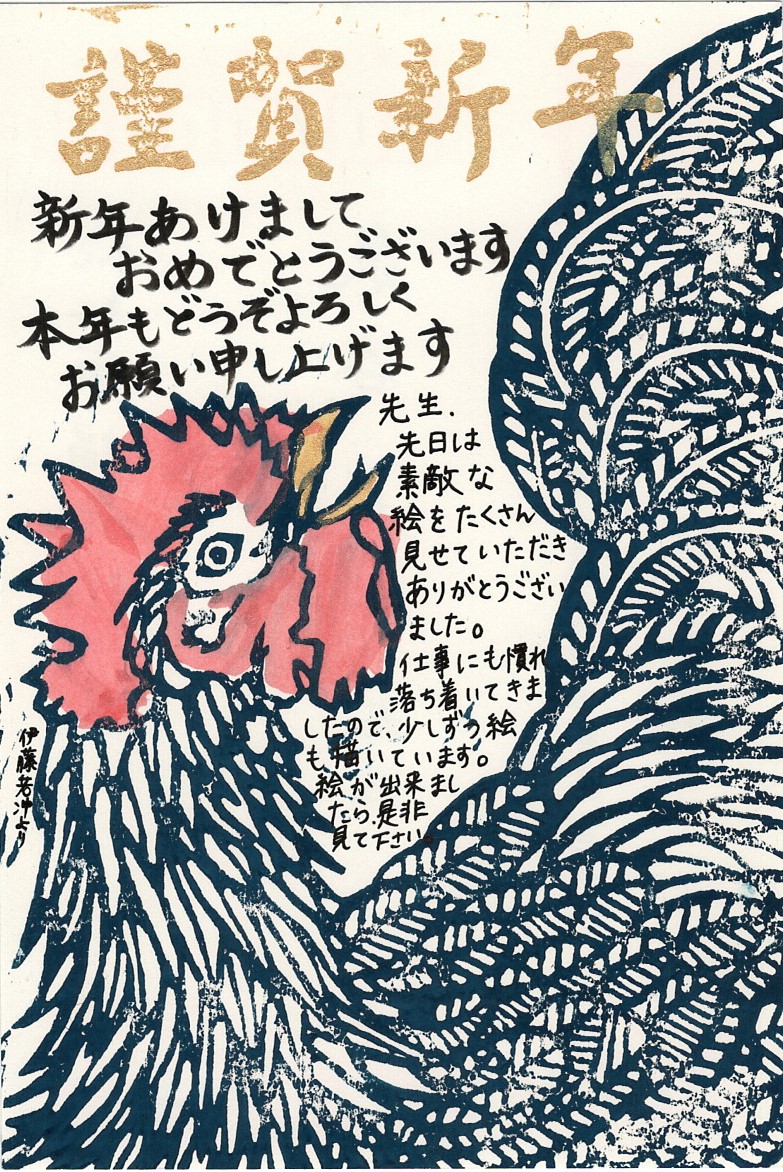 謹賀新年
新年あけまして
おめでとうございます
本年もどうぞよろしく
お願い申し上げます
先生、
先日は
素敵な
絵をたくさん
見せていただき
ありがとうござい
ました。
仕事にも慣れ
落ち着いてきま
したので、少しずつ絵
も描いています。
絵が出来まし
たら、是非
見て下さい。
伊藤若冲より